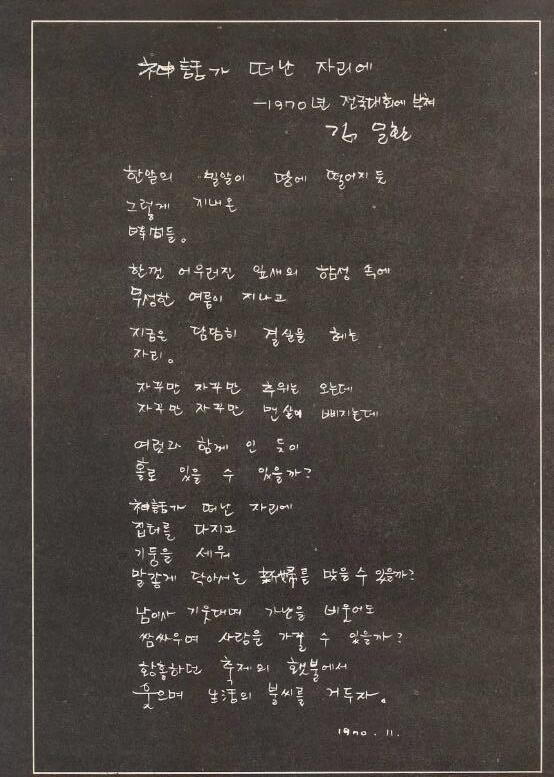 神話가 떠난 자리에
—1970년 전국대회에 부쳐
김 문환
한알의 밀알이 땅에 떨어지듯
그렇게 지내온
時間들。
한껏 어우러진 잎새의 함성 속에
무성한 여름이 지나고
지금은 담담히 결실을 헤는
자리。
자꾸만 자꾸만 추위는 오는데
자꾸만 자꾸만 맨살에 삐지는데
여럿과 함께 인 듯이
홀로 있을 수 있을까?
神話가 떠난 자리에
집터를 다지고
기둥을 세워
말갛게 닦아서는 新婦를 맞을 수 있을까?
남이사 기웃대며 가난을 비웃어도
쌈싸우며 사랑을 가꿀 수 있을까?
황홀하던 축제의 횃불에서
웃으며 生活의 불씨를 거두자。
1970. 11.